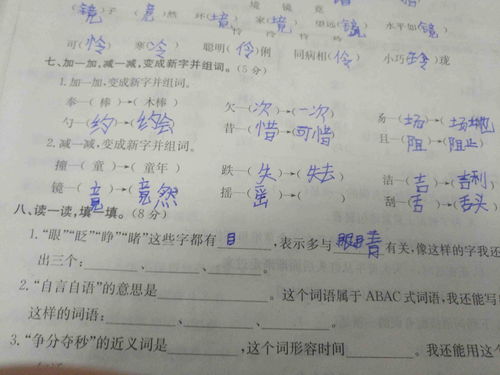 境 镜 竟
(镜)子 (竟)然 环(境) 家(境) 望远(镜) 水平如(镜)
怜 伶 怜 伶 玲
可(怜) 寒(冷) 聪明(伶)俐 同病相(怜) 小巧(玲)珑
七、加一加,减一减,变成新字并组词。(5分)
1.加一加,变成新字并组词。
奉—(棒)→(木棒) 欠—(次)→(一次) 昜—(场)→(场地)
勺—(约)→(约会) 昔—(惜)→(可惜) 且—(阻)→(阻止)
2.减一减,变成新字并组词。
撞—(童)→(童年) 跌—(失)→(失去) 洁—(吉)→(吉利)
镜—(竟)→(竟然) 摇—(䍃)→( ) 刮—(舌)→(舌头)
八、读一读,填一填。(8分)
1.“眼”“眨”“睁”“睹”这些字都有目,表示多与眼睛有关,像这样的字我还
出三个:______、______、______。
2.“自言自语”的意思是____________。这个词语属于ABAC式词语,我还能写
这样的词语:______、______、______。
3.“争分夺秒”的近义词是________,这个词形容时间________。我还能用这个